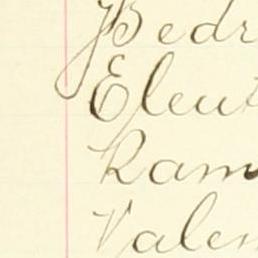 Bedr
Eleut
Ram
Valen